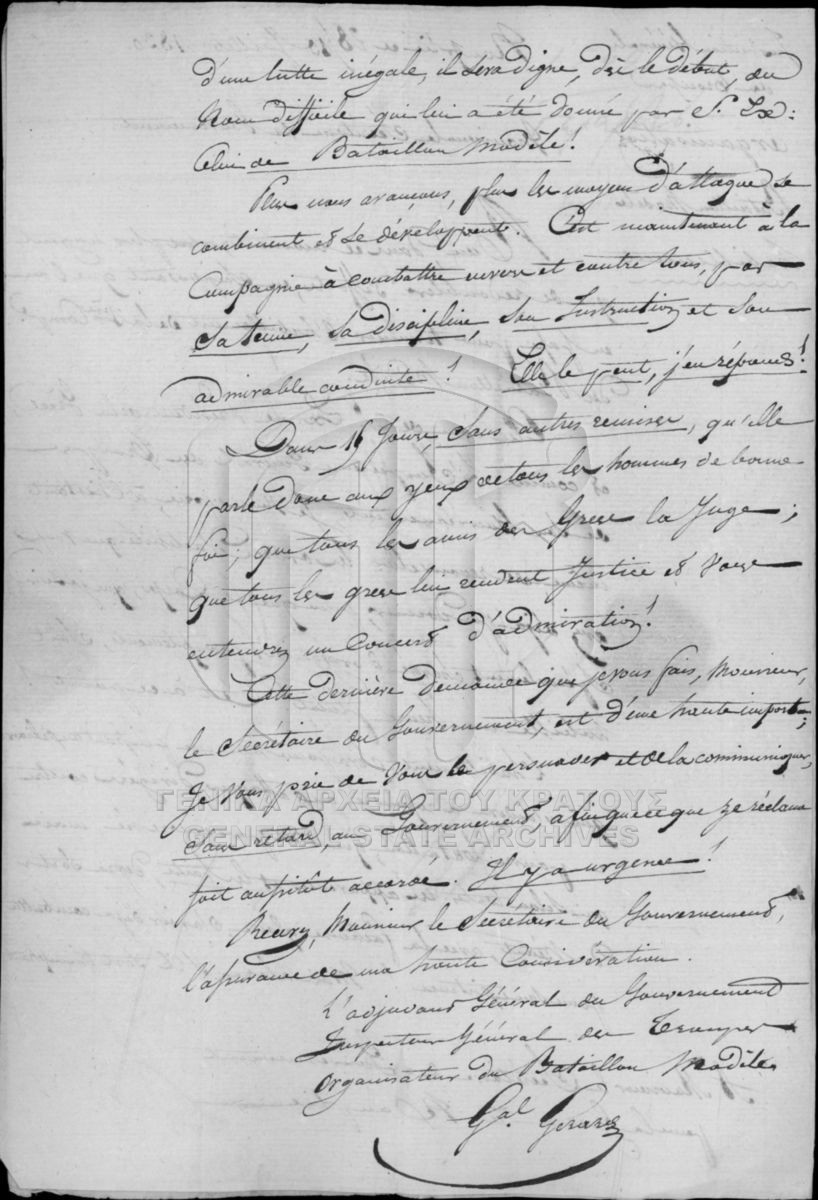 d'une lutte inégale, il sera digne, dès le début, du
Nom difficile qui lui a été donné par S. Ex:
Celui de Bataillon Modèle!
Plus nous avançons, plus les moyens d'attaque se
combinent et se développent. C'est maintenant à la
Compagnie à combattre envers et contre tous, par
sa tenue, sa discipline, son Instruction et son
admirable conduite! Elle le peut, j'en réponds!
Dans 15 Jours, sans autres remises, qu'elle
parle donc aux yeux de tous les hommes de bonne
foi; que tous les amis des Grecs la Juge;
que tous les grecs lui rendent Justice et Vous
entendrez un Concert d'admiration!
Cette dernière demande que je vous fais, Monsieur,
le Secrétaire du Gouvernement, est d'une haute importce;
Je Vous prie de Vous le persuader et de la communiquer,
sans retard, au Gouvernement, afin que ce que je réclame
soit aussitôt accordé. Il y a urgence!
Recevez, Monsieur le Secrétaire du Gouvernement,
l'assurance de ma haute Considération.
L'adjudant Général du Gouvernement
Inspecteur Général des Troupes
Organisateur du Bataillon Modèle
Gal Gérard
ΓΕΝΙΚΑ ΑΡΧΕΙΑ ΤΟΥ ΚΡΑΤΟΥΣ
GENERAL STATE ARCHIVES